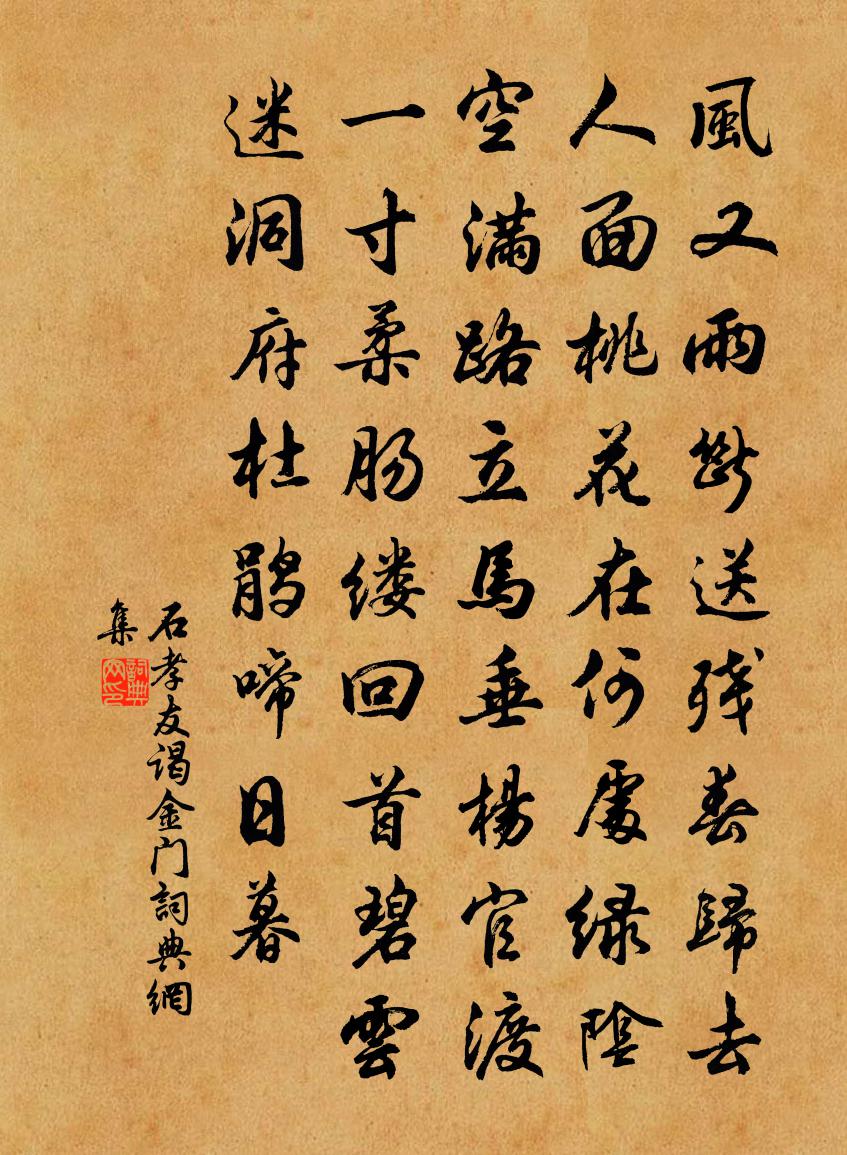 風又雨斷送残春歸去
人面桃花在何處绿陰
空滿路立馬垂楊官渡
一寸柔肠缕回首碧雲
迷洞府杜鹃啼日暮
石孝友谒金门詞典網
集
詞典網印